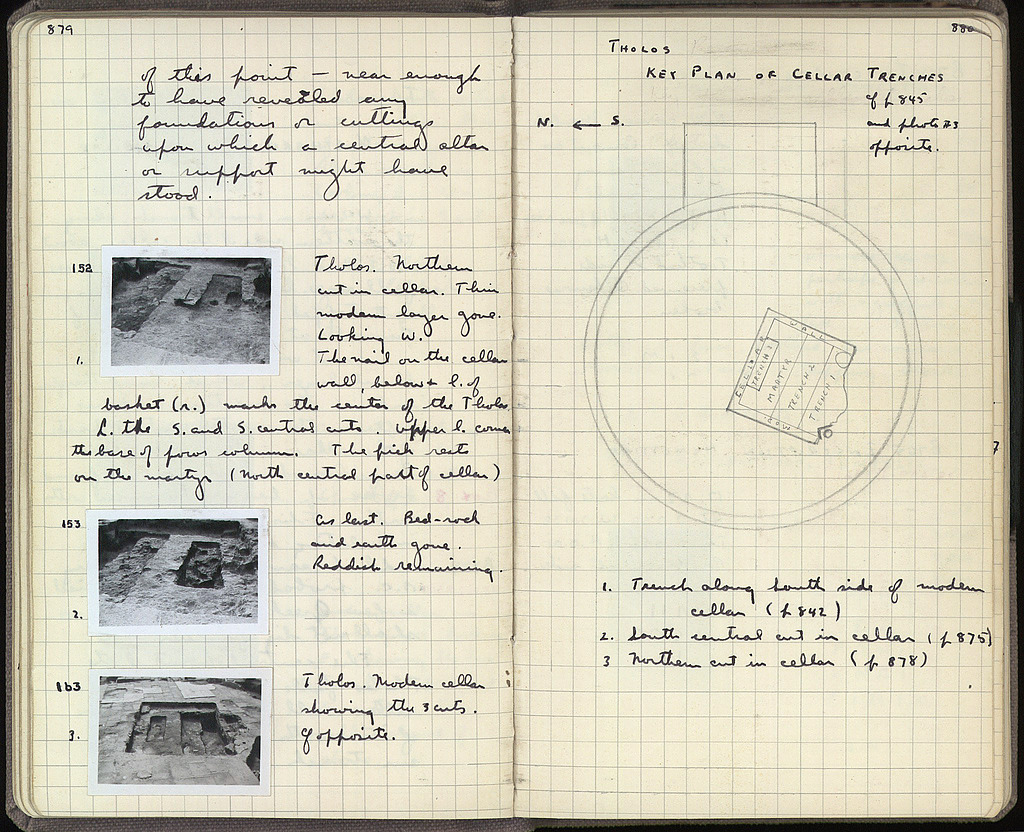 879
of this point – near enough
to have revealed any
foundations or cuttings
upon which a central altar
or support might have
stood.
152
1.
Tholos. Northern
cut in cellar. Thin
modern layer gone.
Looking W.
The nail on the cellar
wall, below & l. of
basket (r.) marks the center of the Tholos
L. the S. and S. central cuts. Upper l. corner
the base of poros column. The pick rests
on the martyr (North central part of cellar)
153
2.
As last. Bed-rock
and earth gone.
Reddish remaining.
163
3.
Tholos. Modern cellar
showing the 3 cuts.
Cf opposite.
880
THOLOS
KEY PLAN OF CELLAR TRENCHES
cf p 845
and photo #3
opposite.
N. ← S.
CELLAR
WALL
TRENCH 1
MARTYR
TRENCH 2
TRENCH 1
1. Trench along South side of modern
cellar (p 842)
2. South central cut in cellar (p 875)
3 Northern cut in cellar (p 878)